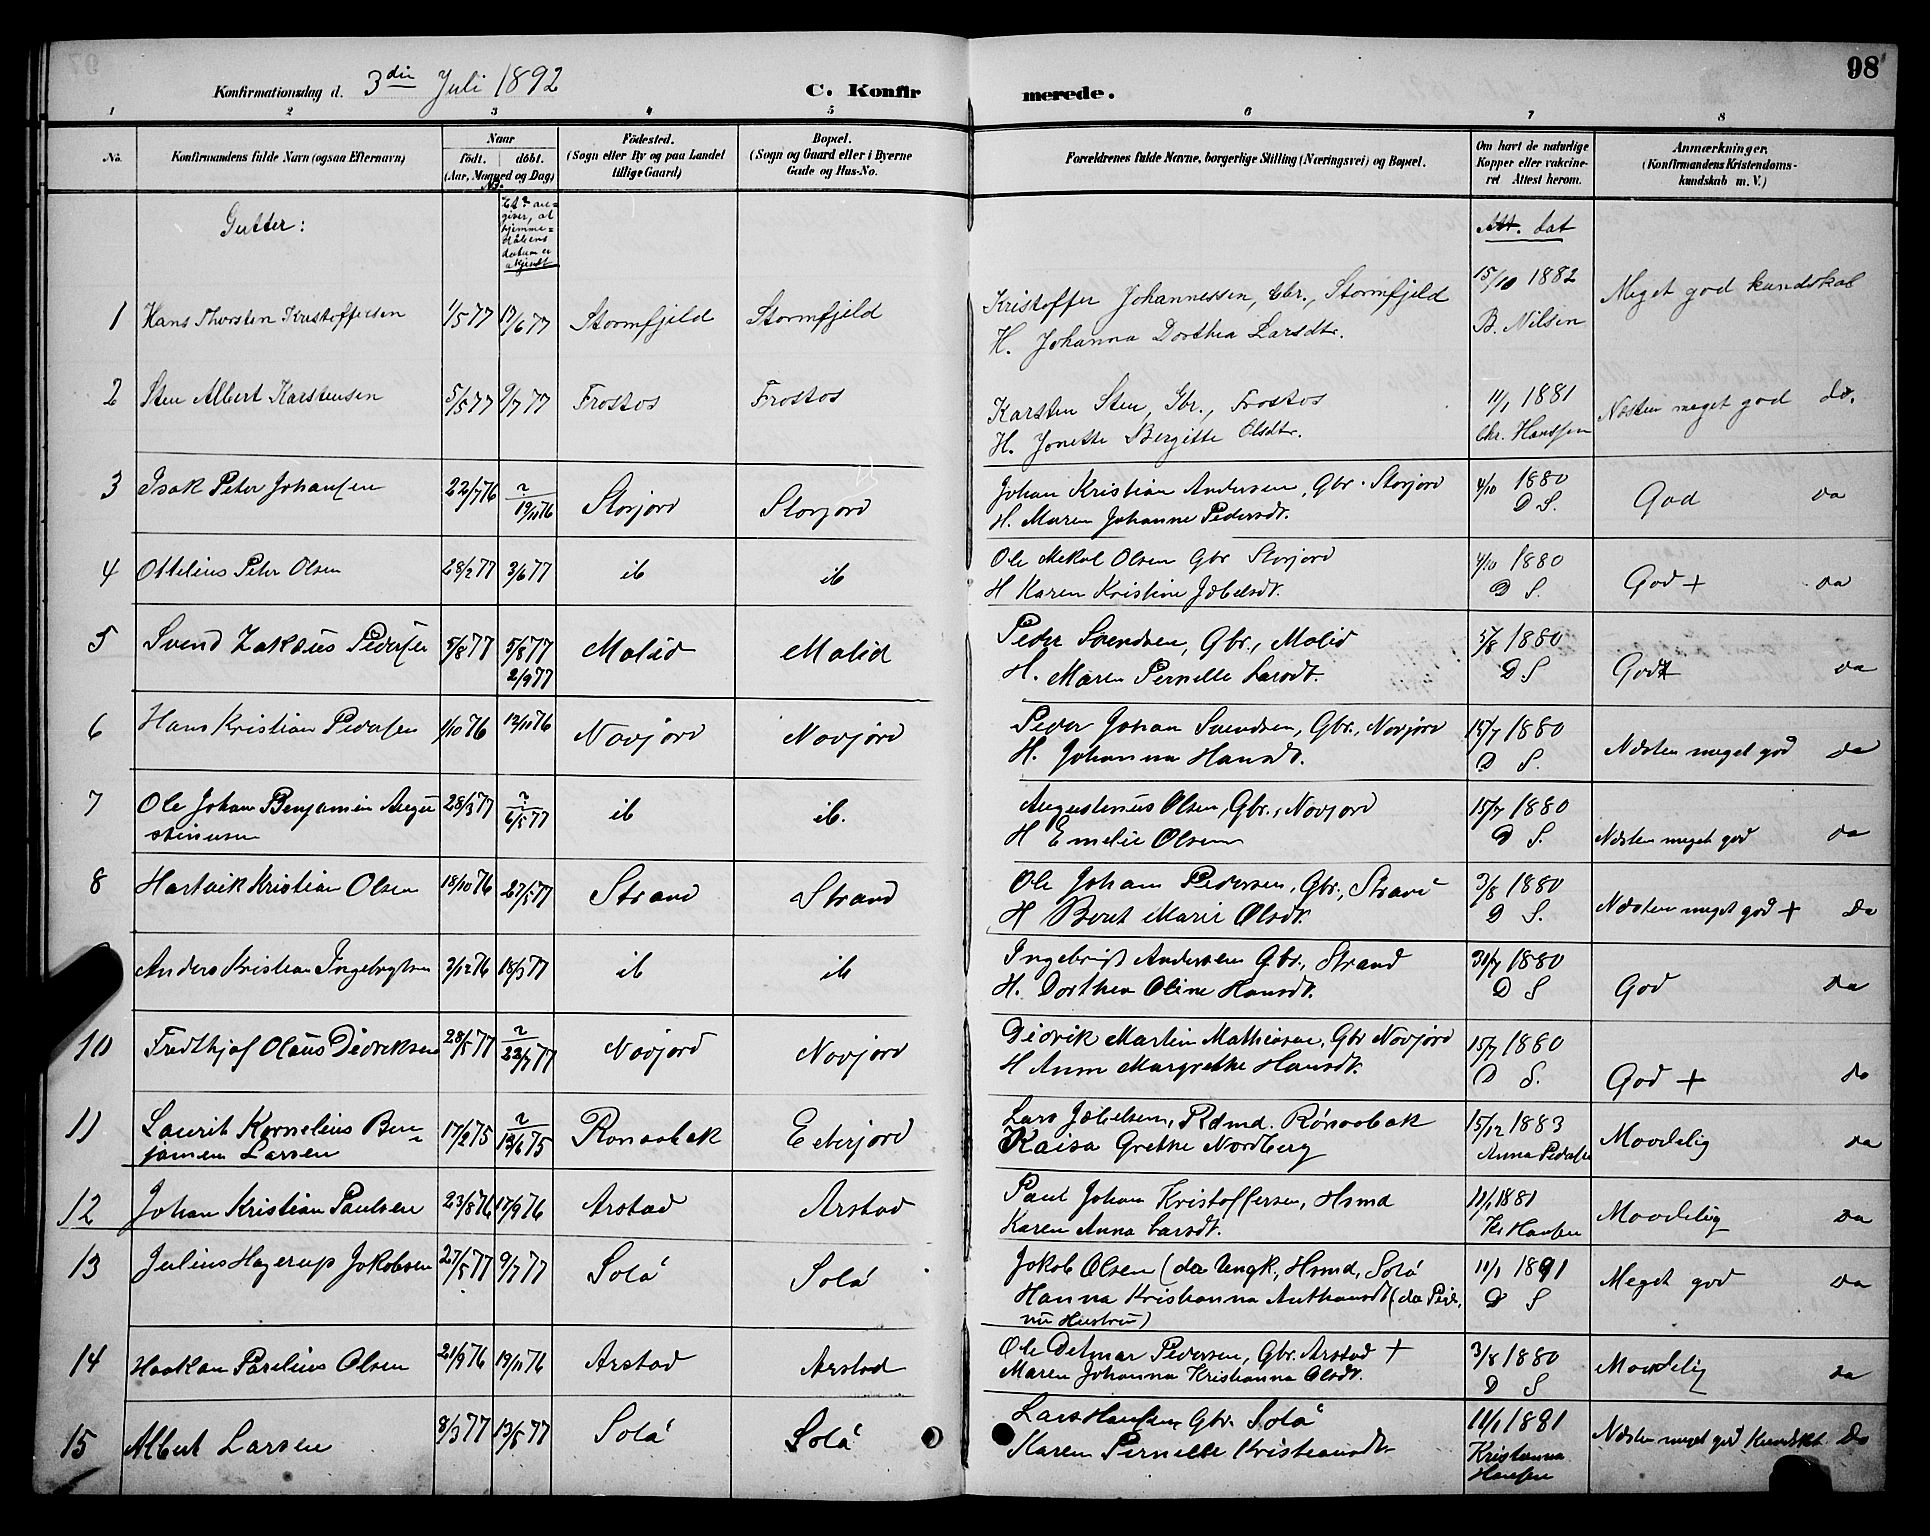 98
Konfirmationsdag d. 3die Juli 1892
C. Konfirmerede.
1 2 3 4 5 6 7 8
No. Konfirmandens fulde Navn (ogsaa Efternavn) Naar født. døbt. (Aar, Maaned og Dag) Fødested. (Sogn eller By og paa Landet tillige Gaard) Bopæl. (Sogn og Gaard eller i Byerne Gade og Hus-No. Forældrenes fulde Navne, borgerlige Stilling (Næringsvei) og Bopæl. Om havt de naturlige Kopper eller vakcineret Attest herom. Anmærkninger. (Konfirmandens Kristendomskundskab m. V.)
Gutter: Att. dat
1 Hans Thorsten Kristoffersen 1/5 77 17/6 77 Stormfjeld Stormfjeld Kristoffer Johannessen, Gbr., Stormfjeld 15/10 1882 Meget god kundskab
H. Johanna Dorthea Larsdtr. B. Nilsen
2 Sten Albert Karstensen 5/5 77 9/7 77 Frostos Frostos Karsten Sten, Gbr., Frostos 11/1 1881 Næsten meget god do.
H. Jonette Bergitte Olsdtr. Chr. Hanssen
3 Isak Peter Johansen 22/7 76 19/11 76 Storjord Storjord Johan Kristian Andersen, Gbr. Storjord 4/10 1880 God da
H. Maren Johanne Pedersdt. D S.
4 Ottelius Peter Olsen 28/2 77 3/6 77 ib ib Ole Mekal Olsen Gbr Storjord 4/10 1880 God + da
H Karen Kristine D S.
5 Svend Zakæus Pedersen 5/8 77 5/8 77 Molid Molid Peder Svendsen, Gbr., Molid 5/8 1880 God da
2/9 77 H. Maren Pernelle Larsdt. D S
6 Hans Kristian Pedersen 1/10 76 12/11 76 Novjord Novjord Peder Johan Svendsen, Gbr., Novjord 15/7 1880 Næsten meget god da
H. Johanna Hansdt. D S.
7 Ole Johan Benjamin Augustinusen 28/3 77 6/5 77 ib ib. Augustinus Olsen, Gbr., Novjord 15/7 1880 Næsten meget god da
H Emelie Olsen D S.
8 Hartvik Kristian Olsen 18/10 76 27/5 77 Strand Strand Ole Johan Pedersen, Gbr., Strand 3/8 1880 Næsten meget god + Da
H Beret Marie Olsdt. D S.
Anders Kristian Ingebrigtsen 3/12 76 18/3 77 ib ib Ingebrigt Andersen Gbr., Strand 31/7 1880 God da
H. Dorthea Oline Hansdt. D S
10 Fredthjof Olaus Didriksen 28/5 77 22/7 77 Novjord Novjord Didrik Martin Mathisen, Gbr Novjord 15/7 1880 God + do
H Anne Margrethe Hansdt. D S.
11 Laurit Kornelius Benjamin Larsen 17/2 75 13/6 75 Ronaabak Eiterjord Lars Rdmd. Rønaabak 15/12 1883 Maadelig da
Kaisa Grethe Nordberg Anna Pedersen
12 Johan Kristian Paulsen 23/8 76 17/9 76 Arstad Arstad Paul Johan Kristoffersen, Hsmd 11/1 1881 Maadelig da
Karen Anna Larsdt. Hansen
13 Julius Hagerup Jakobsen 27/5 77 9/7 77 Solå Solå Jakob Olsen (da Ungk., Hsmd, Solå 11/1 1891 Meget god da
Hanna Kristianna Anthonsdt (da Pige, D S
nu Hustru)
14 Haakan Parelius Olsen 21/9 76 19/11 76 Arstad Arstad Ole Detmar Pedersen, Gbr. Arstad + 3/8 1880 Maadelig da
Maren Johanna Kristianna Olsdt. D S
15 Albert Larsen 8/3 77 13/5 77 Solå Solå Lars Hansen Gbr. Solå 11/1 1891 Næsten meget god Kundsk. Do
Karen Pernelle Kristiansdt. Kristianna
Hansen